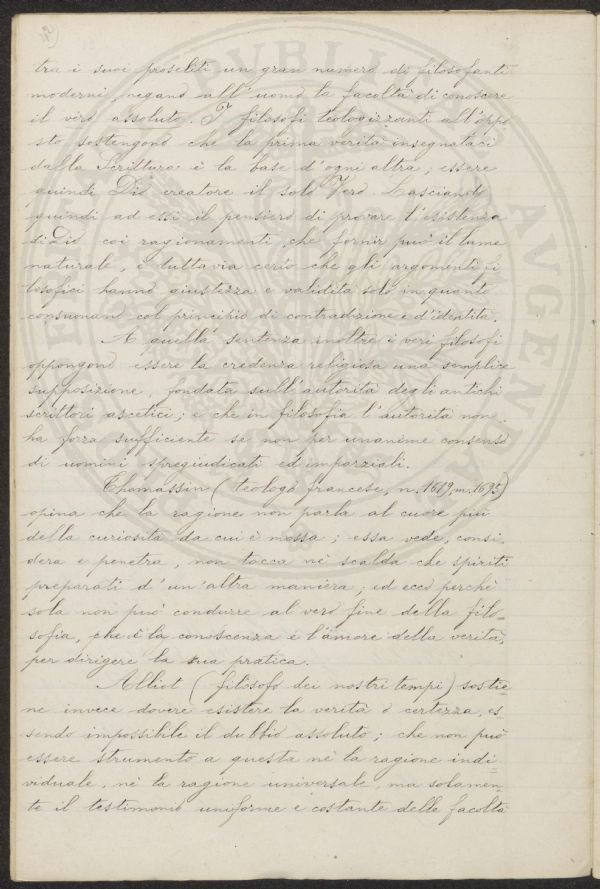 42)
tra i suoi proseliti un gran numero di filosofanti
moderni, negano all'uomo la facoltà di conoscere
il vero assoluto. I filosofi teologizzanti all'oppo
sto sostengono che la prima verità insegnataci
dalla Scrittura è la base d'ogni altra; essere
quindi Dio creatore il solo Vero. Lasciando
quindi ad essi il pensiero di provare l'esistenza
di Dio coi ragionamenti, che fornir può il lume
naturale, è tuttavia certo che gli argomenti fi
losofici hanno giustezza e validità solo in quanto
consuonano col principio di contradizione e d'identità.
A quella sentenza inoltre i veri filosofi
oppongono essere la credenza religiosa una semplice
supposizione, fondata sull'autorità degli antichi
scrittori ascetici; e che in filosofia l'autorità non
ha forza sufficiente se non per unanime consenso
di uomini spregiudicati ed imparziali.
Thomassin (teologo francese, n. 1619, m. 1695)
opina che la ragione non parla al cuore più
della curiosità da cui è mossa; essa vede, consi,
dera e penetra, non tocca nè scalda che spiriti
preparati d'un'altra maniera; ed ecco perchè
sola non può condurre al vero fine della filo-
sofia, che è la conoscenza e l'amore della verità,
per dirigere la sua pratica.
Alliot (filosofo dei nostri tempi) sostie-
ne invece dovere esistere la verità o certezza, es
sendo impossibile il dubbio assoluto; che non può
essere strumento a questa nè la ragione indi-
viduale, nè la ragione universale, ma solamen-
te il testimonio uniforme e costante delle facoltà
PUBLICAE
AUGENDA